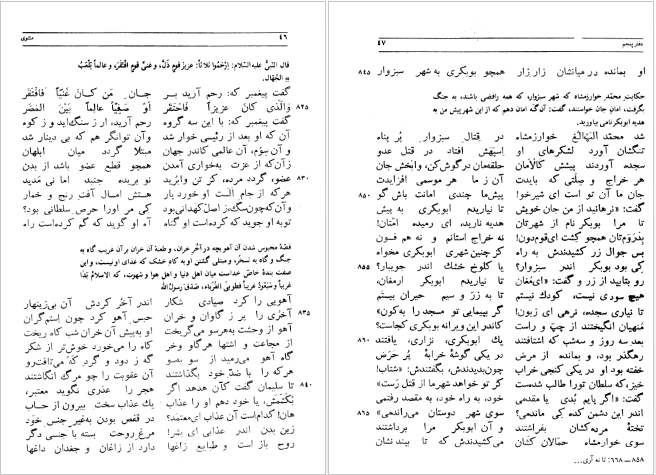 ۴۶ مثنوی
قال النبیّ علیه السلام: اِرْحَمُوا ثلاثاً: عزیزَ قومٍ ذَلَّ، و غنیَّ قومٍ افْتَقَرَ، و عالماً یَلْعَبُ
بِهِ الجُهّال.
گفت پیغمبر که: رحم آرید بر جانِ مَن کانَ غَنیّاً فافْتَقَر
۸۲۵ وَالّذی کانَ عزیزاً فَاحْتُقَر اَوْ صَفِیّاً عالِماً بَیْنَ المُضَر
گفت پیغمبر که: با این سه گروه رحم آرید، ار ز سنگ‌اید و ز کوه
آن که او بعد از رئیسی خوار شد وآن توانگر هم که بی دینار شد
و آن سوّم، آن عالمی کاندر جهان مبتلا گردد میان ابلهان
زآن‌که از عزت به‌خواری آمدن همچو قطع عضو باشد از بدن
۸۳۰ عضو، گردد مرده، کز تن وابُرید نو بریده جنبد اما نی مدید
هرکه از جام الست او خورد پار هستش امسال آفت رنج و خمار
و آن که چون‌سگ ز اصل کهدانی بود کی مر او را حرص سلطانی بود؟
توبه او جوید که کرده‌ست او گناه آه او گوید که گم کرده‌ست راه
قصهٔ محبوس شدن آن آهو بچه در آخُر خران، و طعنهٔ آن خران بر آن غریب گاه به
جنگ و گاه به تسخر، و مبتلی گشتن او به کاهِ خشک که غذای او نیست، و این
صفت بندهٔ خاصّ خداست میان اهل دنیا و اهل هوا و شهوت، که الاسلامُ بَدَأ
غریباً و سَیَعُودُ غریباً فَطوبی لِلْغُرَباء، صَدَقَ رسولُ الله
آهویی را کرد صیادی شکار اندر آخُر کردش آن بی‌زینهار
۸۳۵ آخُری را پر ز گاوان و خران حبس آهو کرد چون اِستم‌گران
آهو از وحشت به‌هرسو می‌گریخت او به‌پیش آن خران شب کاه ریخت
از مجاعت و اشتها هر گاو و خر کاه را می‌خورد خوش‌تر از شکر
گاه آهو می‌رمید از سو به‌سو گه ز دود و گرد که می‌تافت‌رو
هرکه را با ضدّ خود بگذاشتند آن عقوبت را چو مرگ انگاشتند
۸۴۰ تا سلیمان گفت کآن هدهد اگر هجر را عذری نگوید معتبر،
بکُشَمَش، یا خود دهم او را عذاب یک عذاب سخت بیرون از حساب
هان! کدام‌است آن عذاب ای‌معتمد؟ در قفص بودن به‌غیر جنس خود
زین بدن اندر عذابی ای بشر! مرغ روحت بسته با جنسی دگر
روح باز است و طبایع زاغها دارد از زاغان و جغدان داغها
دفتر پنجم ۴۷
او بمانده در میانشان زار زار همچو بوبکری به شهر سبزوار ۸۴۵
حکایت محمّد خوارزمشاه که شهر سبزوار، که همه رافضی باشند، به جنگ
بگرفت، امان جان خواستند، گفت: آن‌گه امان دهم که از این شهر پیش من به
هدیه ابوبکرنامی بیاورید.
شد محمّد الپ‌الغ خوارزمشاه در قتال سبزوار پُر پناه
تنگشان آورد لشکرهای او اسپهش افتاد در قتل عدو
سجده آوردند پیشش کالامان حلقه‌مان درگوش‌کن، وابخش جان
هر خراج و صلتی که بایدت آن ز ما هر موسمی افزایدت
جان ما آن تو است ای شیرخو! پیش‌ما چندی امانت باش گو ۸۵۰
گفت: «نرهانید از من جان خویش تا نیاریدم ابوبکری به پیش
تا مرا بوبکر نام از شهرتان هدیه نارید، ای رمیده امّتان!
بِدْرَوَم‌تان همچو کِشت ای‌قوم‌دون! نه خراج اِستانم و نه هم فسون
پس جوال زر کشیدندش به راه کز چنین شهری ابوبکری مخواه
کی بود بوبکر اندر سبزوار؟ یا کلوخ خشک اندر جویبار؟ ۸۵۵
رو بتابید از زر و گفت: «ای‌مغان تا نیاریدم ابوبکر ارمغان،
هیچ سودی نیست، کودک نیستم تا به زرّ و سیم حیران بیستم
تا نیاری سجده، نرهی ای زبون! گر بپیمایی تو مسجد را به‌کون»
مُنهیان انگیختند از چپّ و راست کاندر این ویرانه بوبکری کجاست؟
بعد سه روز و سه‌شب که اشتافتند یک ابوبکری، نزاری، یافتند ۸۶۰
رهگذر بود، و بمانده از مرض در یکی گوشهٔ خرابهٔ پُر حَرَض
خفته بود او در یکی کنجی خراب چون‌بدیدندش، بگفتندش: «شتاب!
خیز، که سلطان تورا طالب شده‌ست کز تو خواهد شهر ما از قتل رَست»
گفت: «اگر پایم بُدی یا مقدمی خود، به راه خود، به مقصد رفتمی
اندر این دشمن کده کی ماندمی؟ سوی شهر دوستان می‌راندمی» ۸۶۵
تختهٔ مرده‌کشان بفراشتند و آن ابوبکر مرا برداشتند
سوی خوارزمشاه حمالان کشان می‌کشیدندش که تا بیند نشان
۸۵۸ــ۶۶۸: تا نه آری...